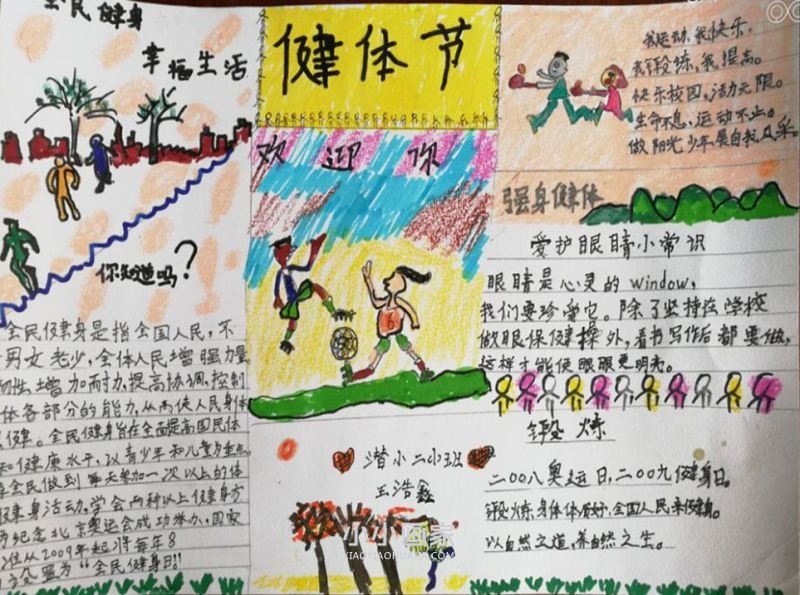 全民健身
幸福生活
你知道吗?
全民健身是指全国人民,不
男女老少,全体人民增强力量
韧性,增加耐力,提高协调,控制
体各部分的能力,从而使人民身体
健。全民健身旨在全面提高国民体
和健康水平,以青少年和儿童为重点
全民做到每天参加一次以上的体
健身活动,学会两种以上健身方
纪念北京奥运会成功举办,国家
准从2009年起,将每年8
置为“全民健身日!!
健体节
欢迎你
6
潜小二小班
王浩鑫
小小画家
XIAOXIAOHUAJIA.COM
我运动,我快乐,
我锻炼,我提高。
快乐校园,活力无限。
生命不息,运动不止。
做阳光少年,展自我风采
强身健体
爱护眼睛小常识
眼睛是心灵的window,
我们要珍爱它。除了坚持在学校
做眼保健操外,看书写作后都要做,
这样才能使眼眼更明亮。
锻炼
二〇〇八奥运日,二〇〇九健身日。
锻炼身体体质好,全国人民来健身。
以自然之道,养自然之生。